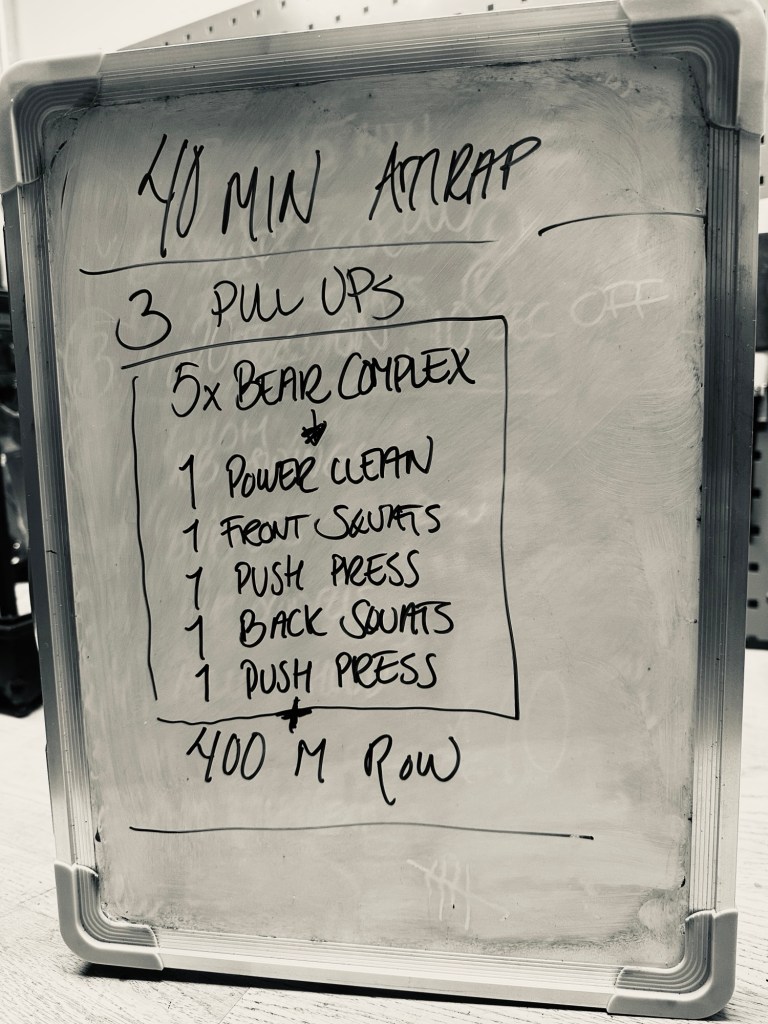 40 MIN AMRAP
3 PULL UPS
5x BEAR COMPLEX
1 POWER CLEAN
1 FRONT SQUATS
1 PUSH PRESS
1 BACK SQUATS
1 PUSH PRESS
+
400 M ROW
SEC OFF